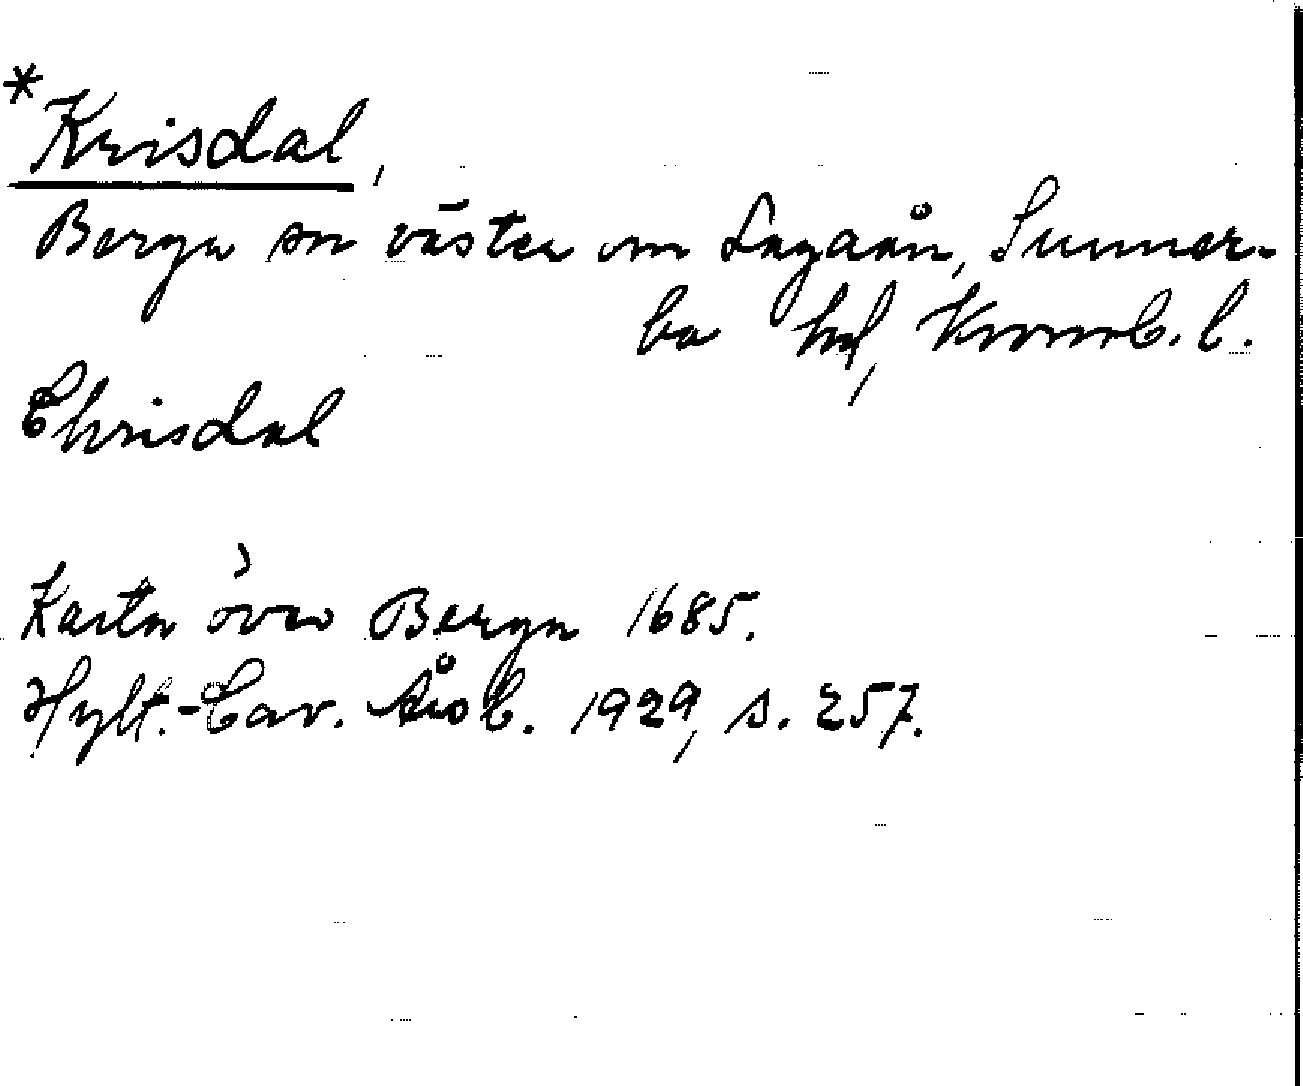 *Krisdal,
Berga sn väster om Lagaån, Sunner-
bo hd, Kronob. l.
Chrisdal
Karta över Berga 1685.
Hylt.-Cav. Årsb. 1929, s. 257.